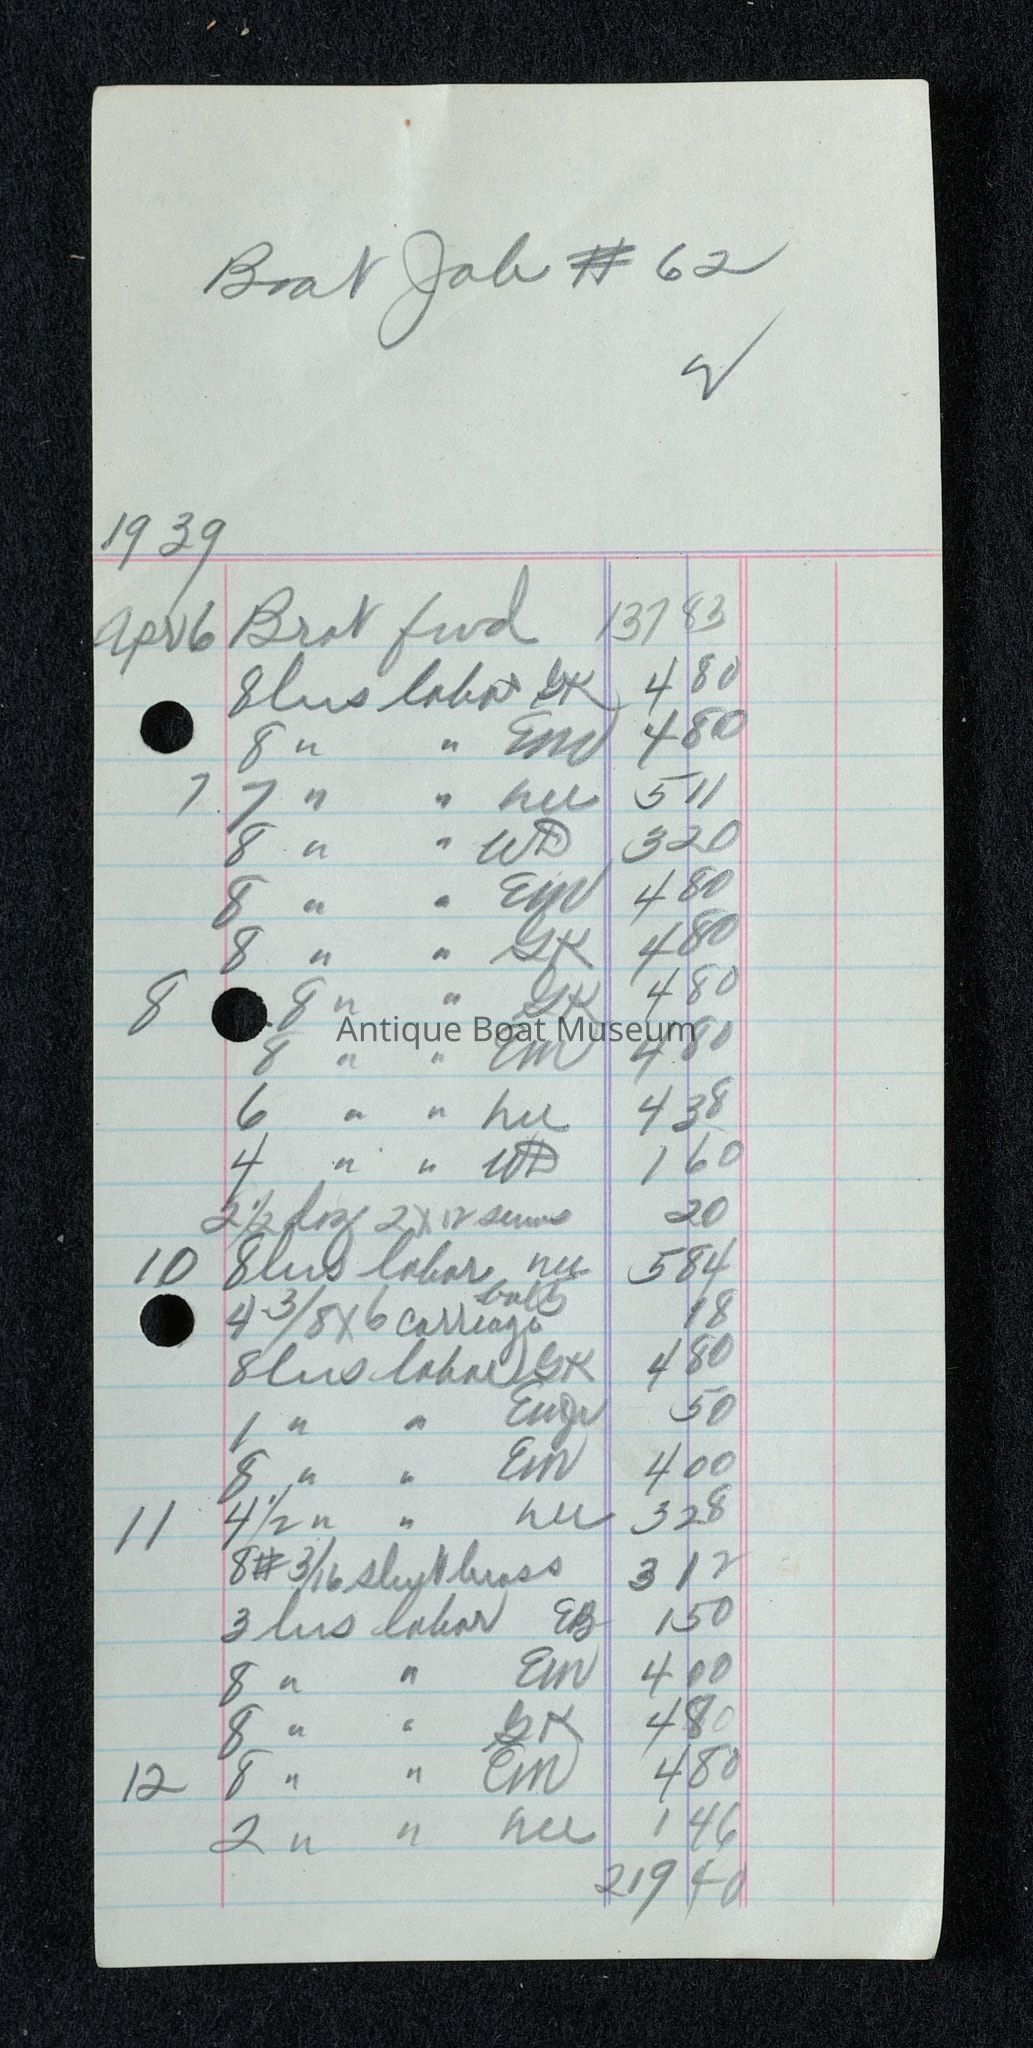 Boat Job # 62
√
1939
Apr 6 Brot fwd 137 83
8 hrs labor GK 4 80
8 " " EM 4 80
7 7 " " 5 11
8 " " WD 3 20
8 " " EM 4 80
8 " " GK 4 80
8 8 " " GK 4 80
Antique Boat Museum
8 " " EM 4 80
6 " " 4 38
4 " " WD 1 60
2 1/2 doz 2 x 12 screws 20
10 8 hrs labor 5 84
4 3/8 x 6 carriage bolts 18
8 hrs labor GK 4 80
1 " " 50
8 " " EM 4 00
11 4 1/2 " " 3 28
8 # 3/16 sheet brass 3 12
3 hrs labor EB 1 50
8 " " EM 4 00
8 " " GK 4 80
12 8 " " EM 4 80
2 " " 1 46
219 40